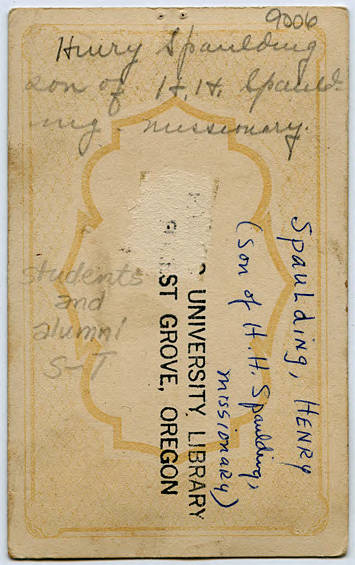 9006
Henry Spaulding
son of H. H. Spauld-
ing missionary.
students
and
alumni
S-T
UNIVERSITY LIBRARY
ST GROVE, OREGON
Spaulding, Henry
(son of H. H. Spaulding,
missionary)